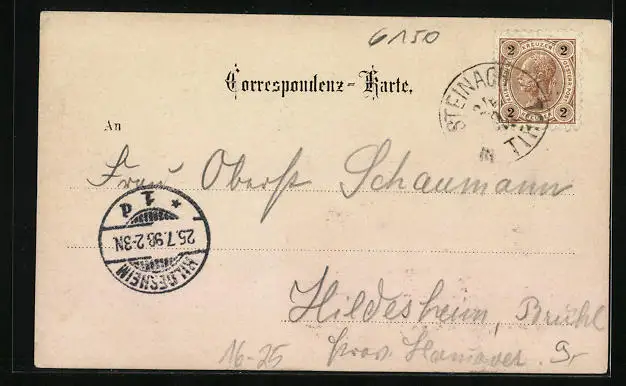 6150
Correspondenz-Karte.
An
STEINAG
TIR
2 KREUZER 2
2 2
Frau Oberst Schaumann
1 d
25.7.98 2-3N
HILDESHEIM
Hildesheim, Brühl
Prov. Hannover.
16-25